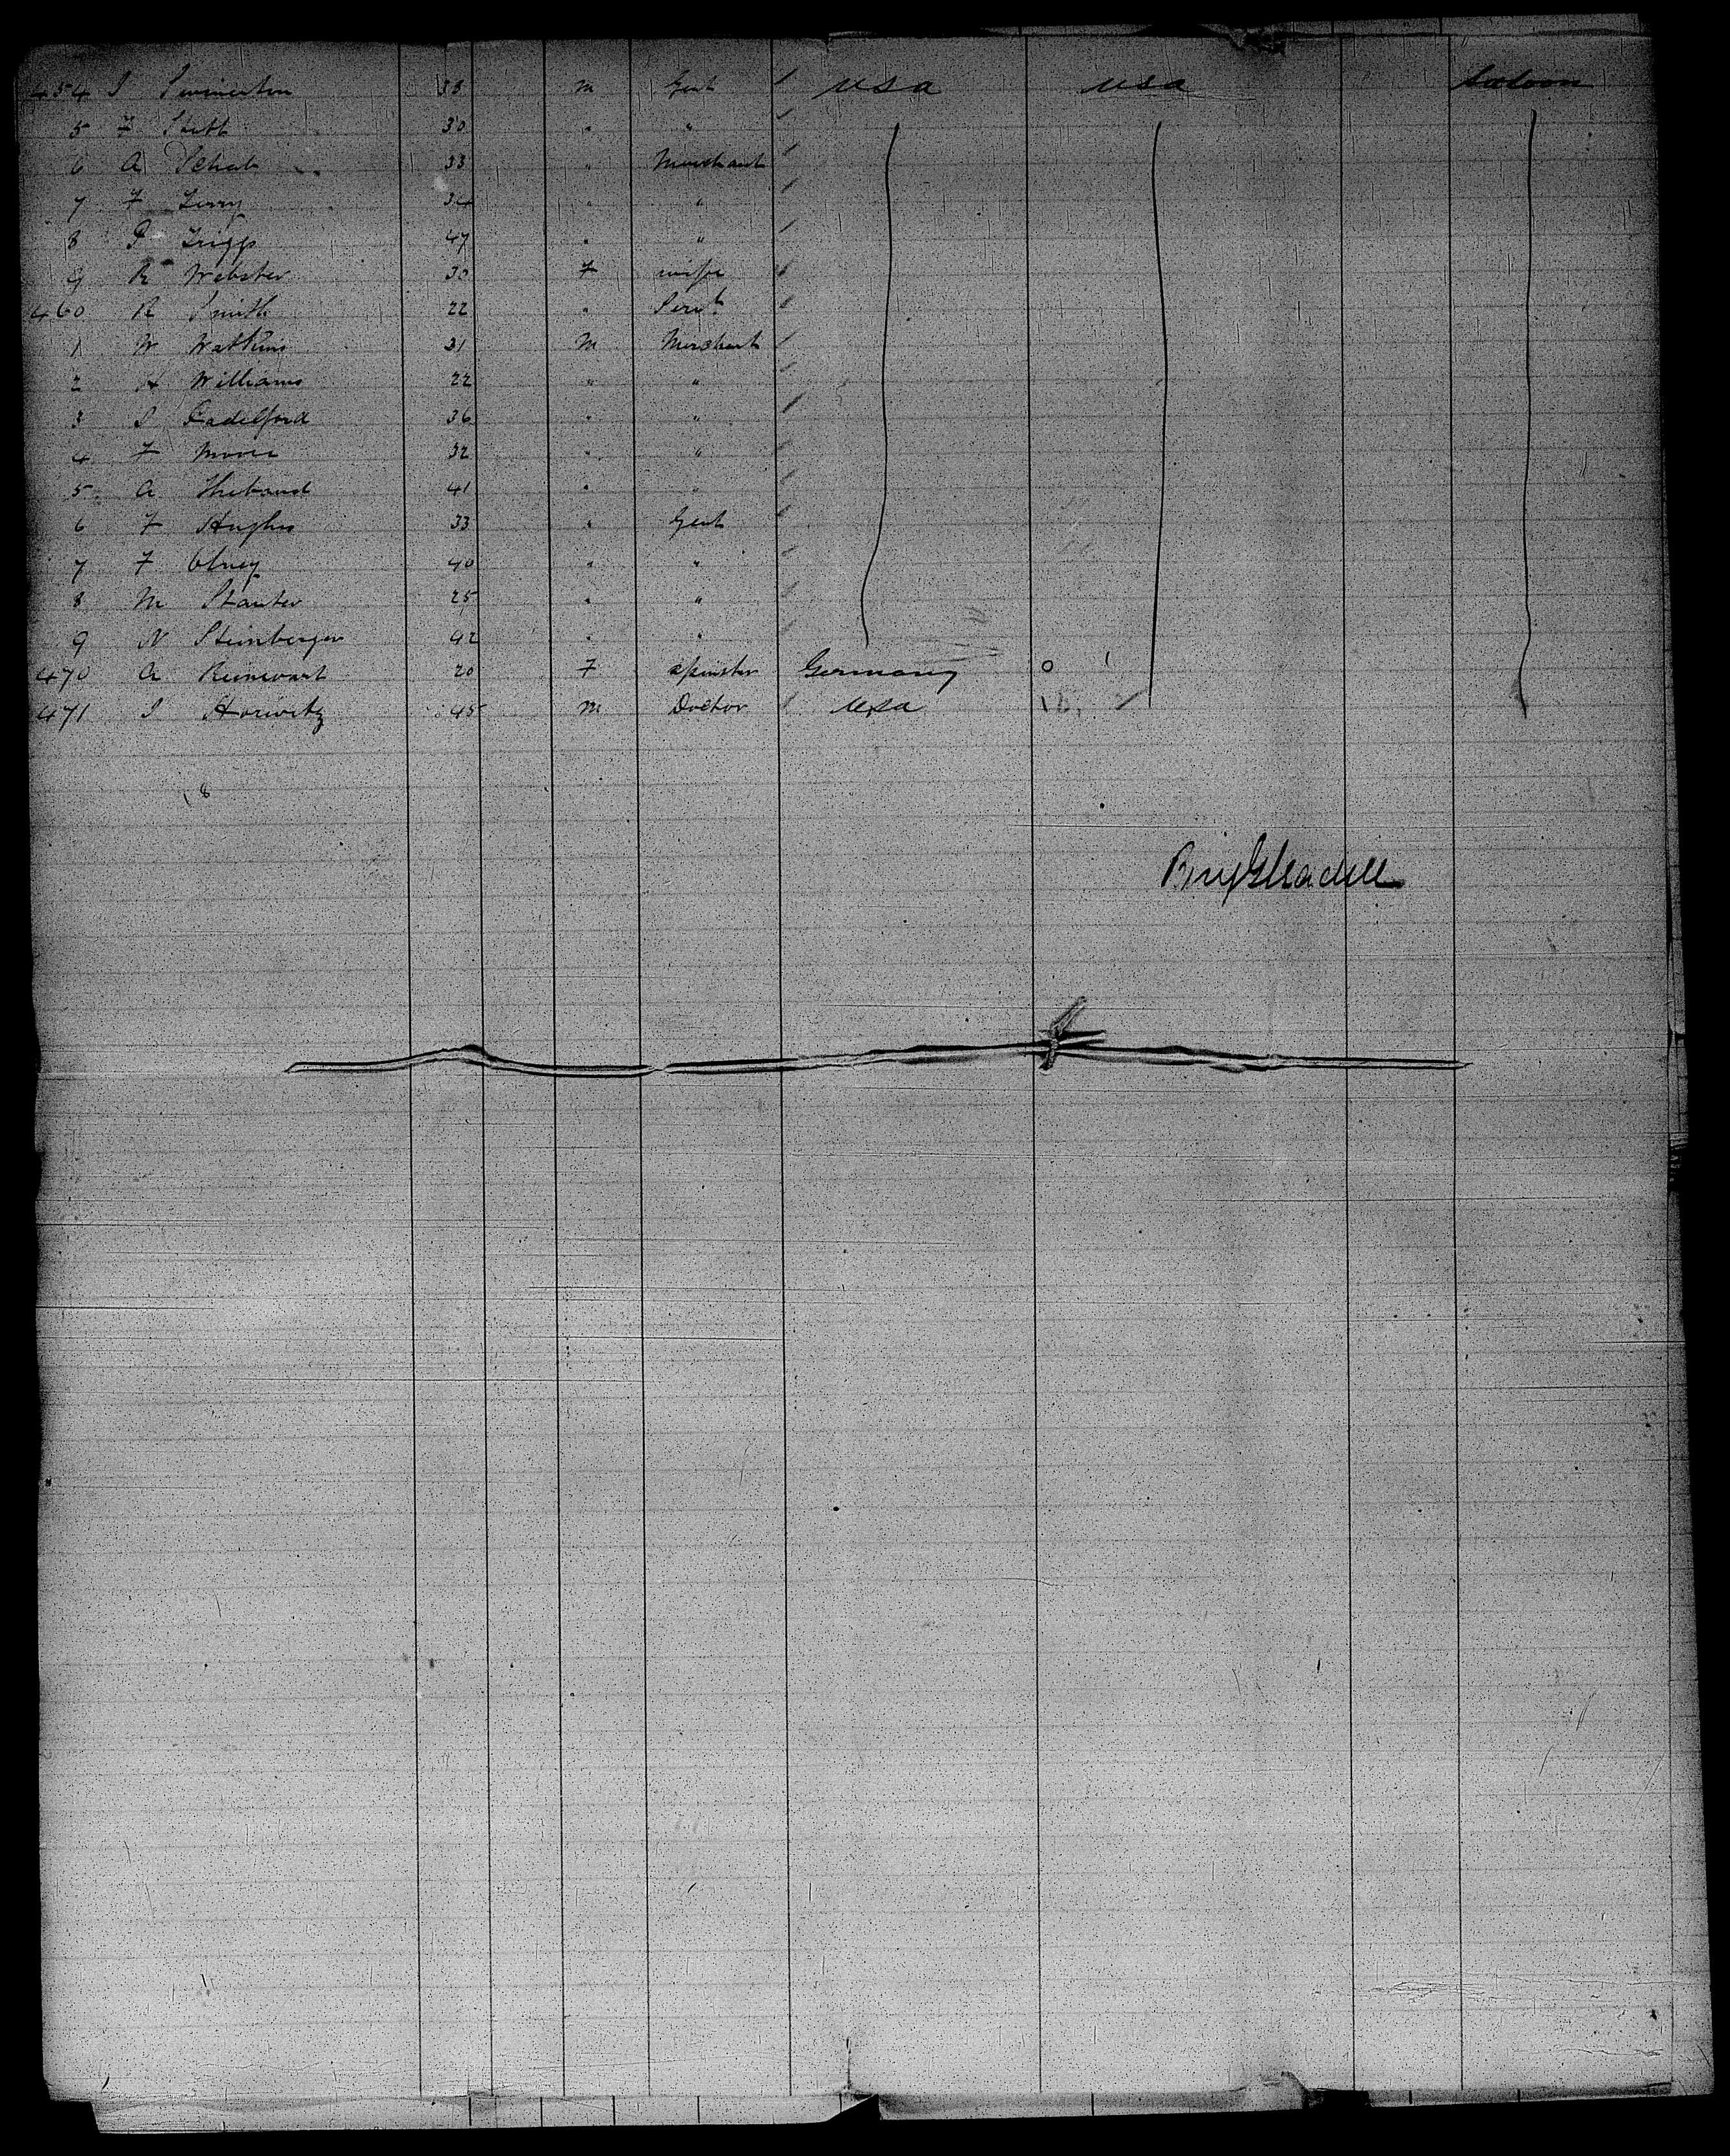 454 S Swinerton 38 m Gent / USA USA Saloon
5 F Stitt 30 " " /
6 A Schab 33 " Merchant /
7 F Terry 34 " " /
8 P Tripp 47 " " /
9 R Webster 30 F wife /
460 R Smith 22 " Servt /
1 W Watkins 31 m Merchant /
2 H Williams 22 " " /
3 S Padelford 36 " " /
4 F 32 " " /
5 A Thebaud 41 " " /
6 F Hughes 33 " Gent /
7 F Olney 40 " " /
8 M 25 " " /
9 N Steinberger 42 " " /
470 A 20 F spinster Germany 0 1
471 S Horwitz 45 m Doctor / USA
18
Benj Gleadell